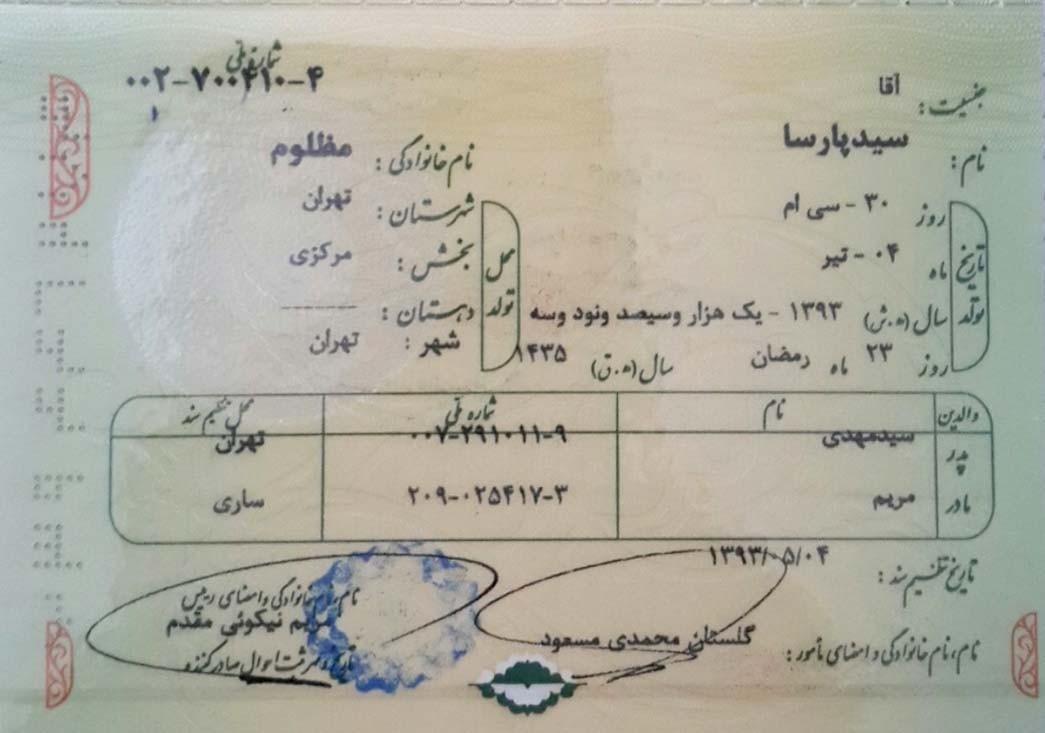 شماره ملی
۰۰۲-۷۰۰۴۱۰-۴
جنسیت: آقا
نام: سیدپارسا
نام خانوادگی: مظلوم
تاریخ تولد
روز ۳۰ - سی ام
ماه ۰۴ - تیر
سال (ه.ش) ۱۳۹۳ - یک هزار وسیصد ونود وسه
روز ۲۳ ماه رمضان سال (ه.ق) ۱۴۳۵
محل تولد
شهرستان: تهران
بخش: مرکزی
دهستان: --------
شهر: تهران
والدین نام شماره ملی محل تنظیم سند
پدر سیدمهدی ۰۰۷-۲۹۱۰۱۱-۹ تهران
مادر مریم ۲۰۹-۰۲۵۴۱۷-۳ ساری
تاریخ تنظیم سند: ۱۳۹۳/۰۵/۰۴
نام، نام خانوادگی و امضای مأمور: گلستان محمدی مسعود
نام، نام خانوادگی و امضای رییس
مریم نیکوئی مقدم
اداره ثبت احوال صادرکننده